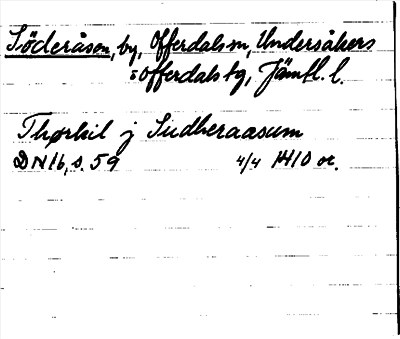 Söderåsen, by, Offerdals sn, Undersåkers
o Offerdals tg, Jämtl. l.
Thorkil j Sudheraasum
DN 16, s. 59 4/4 1410 or.